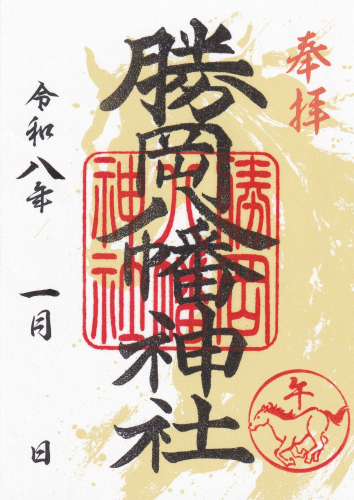 奉拝
勝岡八幡神社
勝岡八幡神社
令和八年 一月 日
午